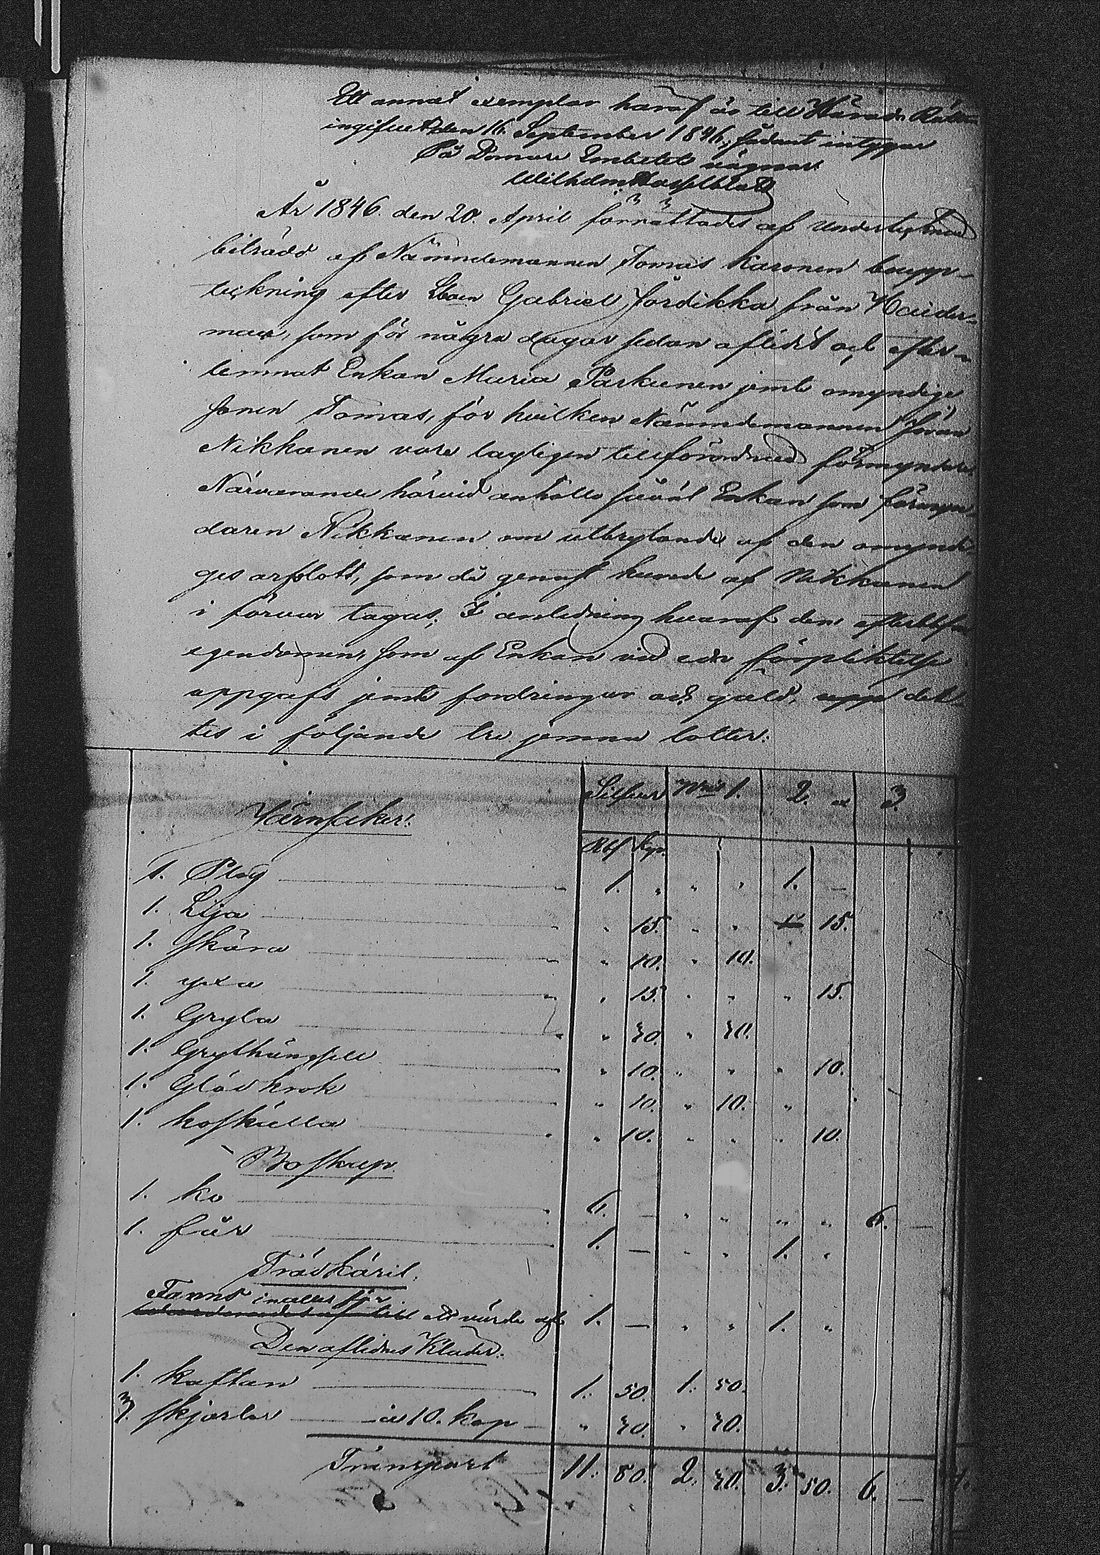 Ett annat exemplar häraf är till Härads Rätten
ingifvet den 16 September 1846, sådant intygar
På Domare Embetets vägnar
Wilhelm Hasselblatt
År 1846 den 20 April förrättades af undertecknad
biträdd af Nämndemannen Tomas Karonen boupp-
teckning efter Gabriel från
man, som för några dagar sedan aflidit och efter-
lemnat Enkan Maria Parkinen jemte omyndige
sonen Tomas, för hvilken Nämndemannen Johan
Nikkanen vore lagligen tillförordnad förmyndare
Närvarande härvid anhöllo såväl Enkan som förmyn-
daren Nikkanen om utbrytande af den omyndi-
ges arfslott, som då genast kunde af Nikkanen
i förvar tagas; I anledning hvaraf den
egendomen, som af Enkan vid eds förpliktelse
uppgafs jemte fordringar och gäld, upp del-
tes i följande tre jemna lotter:
Silfver No 1. 2. 3
Järnsaker. Rbl Kop.
1. Plog 1. " " " 1. —
1. Lija " 15. " " 15.
1. skära " 10. " 10.
1. yxa " 15. " " " 15.
1. Gryta " 70. " 70.
1. Grythängsell " 10. " " " 10.
1. Glöd krok " 10. " 10. "
1. koskälla " 10. " " " 10.
Boskap
1. ko 6. — " " " " 6. —
1. får 1. — " " 1. "
Trädkäril.
till ett värde af 1. — " " 1. "
Den aflidnes Kläder.
1. kaftan 1. 50. 1. 50.
7. skjortor à 10. kop " 70. " 70.
Transport 11. 80. 2. 70. 3. 50. 6. —